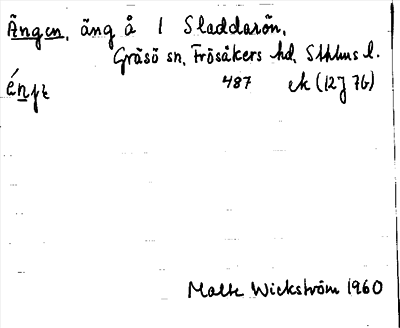 Ängen, äng å 1 Sladdarön,
Gräsö sn, Frösåkers hd, Sthlms l.
487 ek (12J 7b)
Malte Wickström 1960